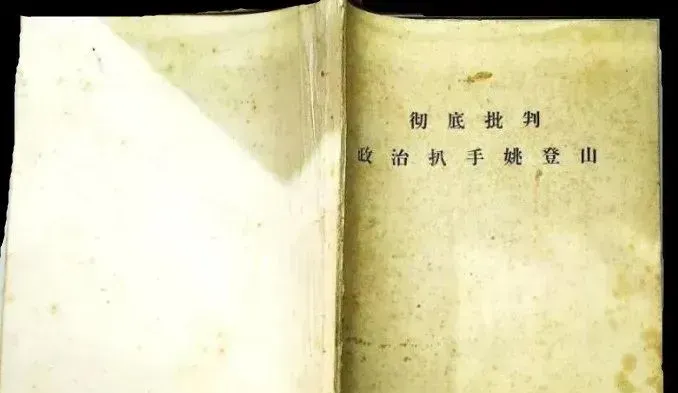 彻底批判
政治扒手姚登山